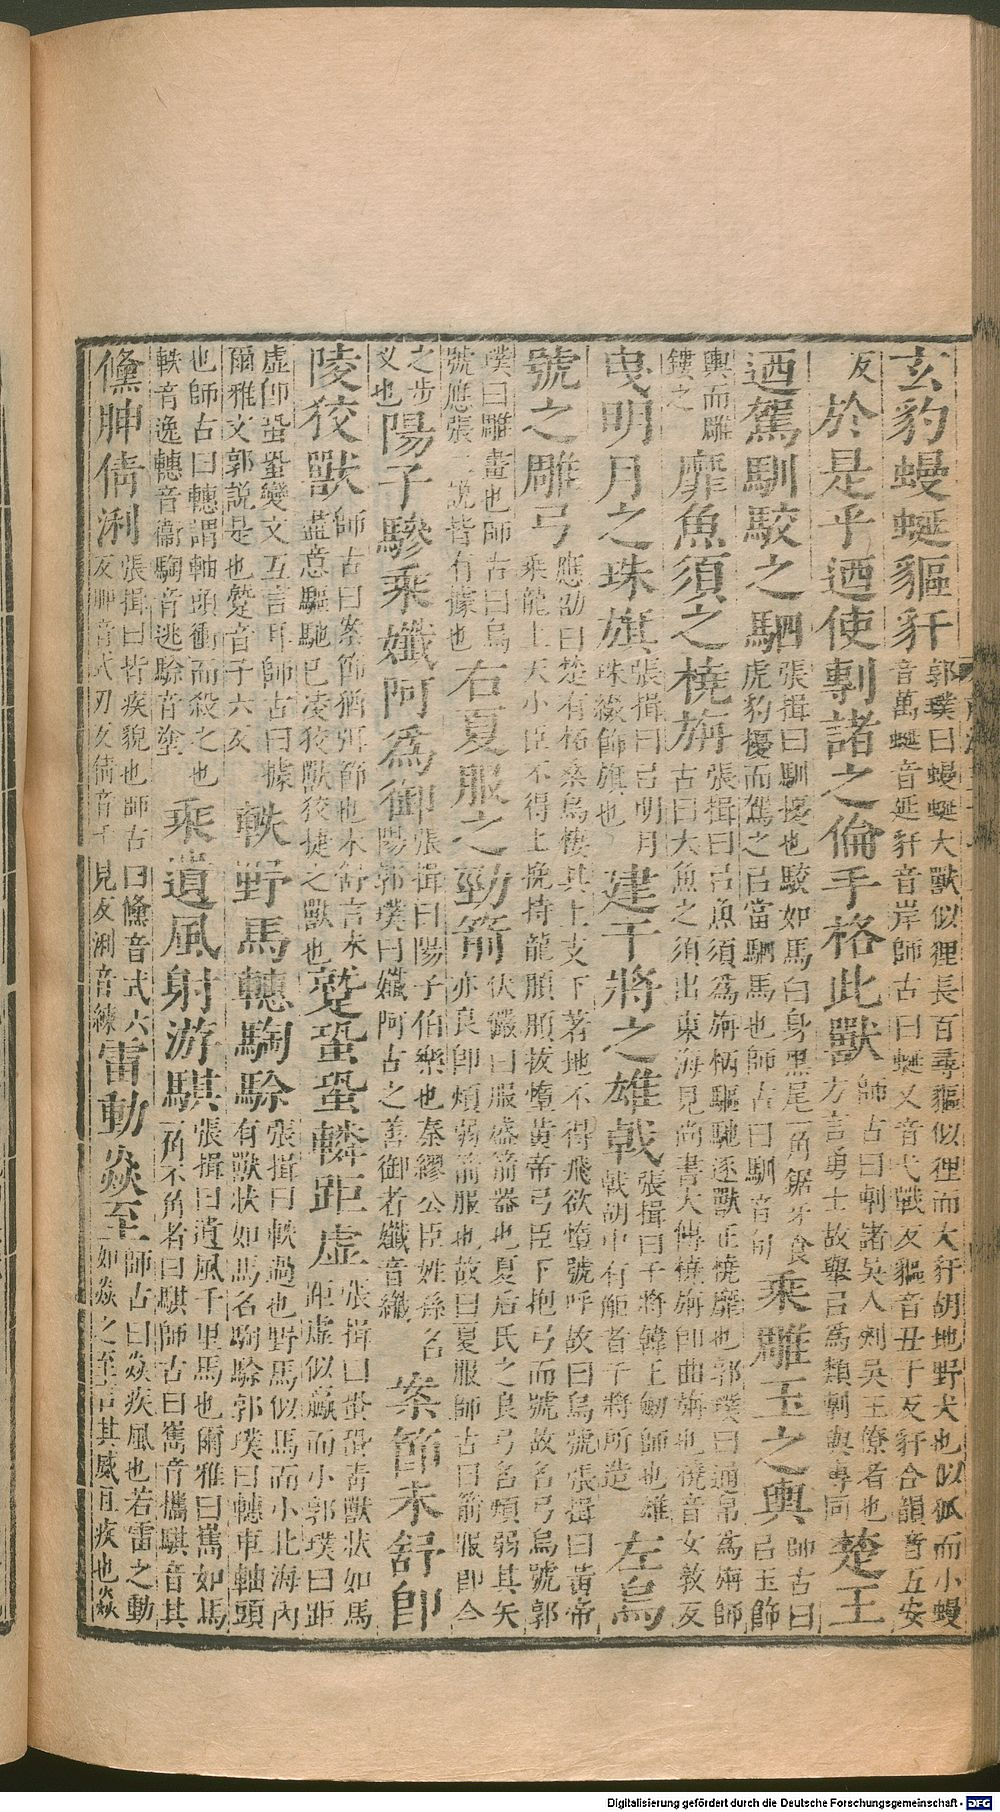 玄豹蟃蜒貙豻郭璞曰蟃蜒大獸似狸長百尋貙似狸而大豻胡地野犬也似狐而小蟃音萬蜒音延豻音岸師古曰蜒又音弋戰反貙音丑于反豻合韻音五安
反於是乎迺使剸諸之倫手格此獸師古曰剸諸吳人刺吳王僚者也方言勇士故舉以爲類剸與專同楚王
迺駕馴駮之駟張揖曰馴擾也駮如馬白身黑尾一角鋸牙食虎豹擾而駕之以當駟馬也師古曰馴音旬乘雕玉之輿師古曰以玉飾
輿而雕鏤之靡魚須之橈旃張揖曰以魚須爲旃柄驅馳逐獸正橈靡也郭璞曰通帛爲旃師古曰大魚之須出東海見尚書大傳橈旃即曲旃也橈音女教反
曳明月之珠旗張揖曰以明月珠綴飾旗也建干將之雄戟張揖曰干將韓王劒師也雄戟胡中有鮔者干將所造左烏
號之雕弓應劭曰楚有柘桑烏棲其上支下著地不得飛欲墮號呼故曰烏號張揖曰黃帝乘龍上天小臣不得上挽持龍頿頿拔墮黃帝弓臣下抱弓而號故名弓烏號郭
璞曰雕畫也師古曰烏號應張二說皆有據也右夏服之勁箭伏儼曰服盛箭器也夏后氏之良弓名煩弱其矢亦良即煩弱箭服也故曰夏服師古曰箭服即今
之步叉也陽子驂乘孅阿爲御張揖曰陽子伯樂也秦繆公臣姓孫名陽郭璞曰孅阿古之善御者孅音纖案節未舒即
陵狡獸師古曰案節猶弭節也未舒言未盡意驅馳已凌狡獸狡捷之獸也蹵蛩蛩轔距虛張揖曰蛩蛩青獸狀如馬距虛似臝而小郭璞曰距
虛即蛩蛩變文互言耳師古曰據爾雅文郭說是也蹵音子六反軼野馬轊騊駼張揖曰軼過也野馬似馬而小北海內有獸狀如馬名騊駼郭璞曰轊車軸頭
也師古曰轊謂軸頭衝而殺之也軼音逸轊音衞騊音逃駼音塗乘遺風射游騏張揖曰遺風千里馬也爾雅曰巂如馬一角不角者曰騏師古曰巂音攜騏音其
儵胂倩浰張揖曰皆疾貌也師古曰儵音式六反胂音式刃反倩音千見反浰音練雷動焱至師古曰焱疾風也若雷之動如焱之至言其威且疾也焱
Digitalisierung gefördert durch die Deutsche Forschungsgemeinschaft - DFG